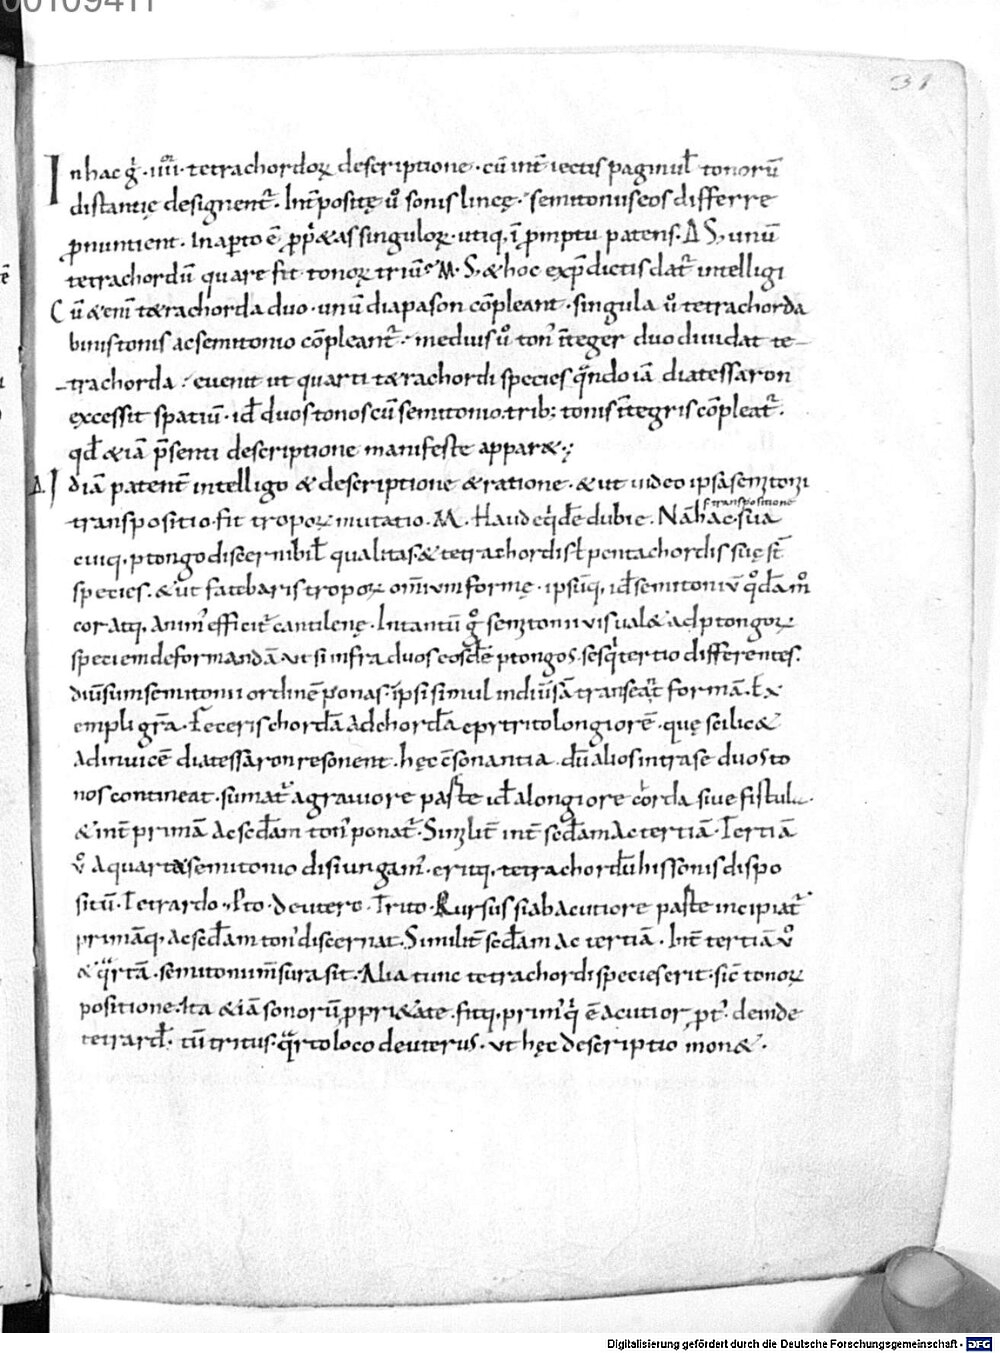 00109411
31
In hac g̉ · iiii · tetrachordoꝝ descriptione · cū int̄ iectis paginul̄ tonorū
distantię designent᷒. Int̄positę ů sonis lineę · semitonus eos differre
ꝓnuntient. In aꝑto ē ꝓpt̄ &as singuloꝝ · utiq; ī promptu patens. Δ S; unū
tetrachordū quare fit tonoꝝ triū · M · S; & hoc exp̄dictis dat᷒ intelligi
Cū & enī t&rachorda duo · unū diapason cōpleant · singula ů tetrachorda
binis tonis ac semitonio cōpleant᷒ · medius ů ton᷒ īteger duo diuidat te-
-trachorda · euenit ut quarti t&rachordi species qn̄do iā diatessaron
excessit spatiū · id̄ duos tonos cū semitonio · trib; tonis īntegris cōpleat᷒.
qd̄ & iā p̄senti descriptione manifeste appar& ·
Δ. Idiā patent̄ intelligo & descriptione & ratione · & ut uideo ipsa semitonii
transpositio · fit tropoꝝ mutatio · M · Haud eqd̄e dubie · Nā hac sua
s transpositione
cuiq; ptongo discernibil̄ qualitas · & tetrachordis ł pentachordis suę st̄
species · & ut fatebaris tropoꝝ omīum formę · ipsūq; id̄ semitoniū qd̄ām̊
cor atq; anim᷒ efficit᷒ cantilenę · In tantū g̊ semitonii uis ual& ad ptongoꝝ
speciem deformandā · ut si infra duos eosdē ptongos · sesq̇tertio differentes ·
diūsum semitonii ordinē ponas · ipsi simul in diūsā transeāt᷒ formā · Ex
empli grā · feceris chordā ad chordā epytrito longiorē · quę scilic&
ad inuicē diatessaron resonent · hęc c̄sonantia · dū alios intra se duos to
nos contineat · sumat᷒ a grauiore parte id̄ a longiore corda siue fistula ·
& int̄ primā ac sed̄am ton᷒ ponat᷒ · Similit̄ int̄ sed̄am ac tertiā · Tertiā
ů a quarta semitonio disiungam᷒ · eritq; tetrachordū his sonis dispo
sitū · Tetrardo · Pto · Deutero · Trito · Rursus si ab acutiore parte incipiat᷒
primāq; ac sed̄am ton᷒ discernat · Similit̄ sed̄am ac tertiā · Int̄ tertiā ů
& qrtā · semitonū m̄sura sit · Alia tunc tetrachordi species erit · sic̄ tonoꝝ
positione · Ita & iā sonorū ꝓpri&ate · fitq; prim᷒ q̇ ē acutior · pt᷒ · deinde
tetrard᷒ · tū tritus · qrto loco deuterus · ut hęc descriptio mon& ·
Digitalisierung gefördert durch die Deutsche Forschungsgemeinschaft - DFG